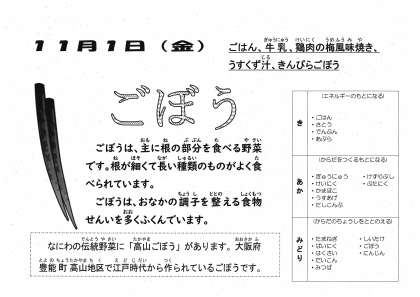 11月1日（金）
ごはん、牛乳、鶏肉の梅風味焼き、
うすくず汁、きんぴらごぼう
ごぼう
ごぼうは、主に根の部分を食べる野菜
です。根が細くて長い種類のものがよく食
べられています。
ごぼうは、おなかの調子を整える食物
せんいを多くふくんでいます。
なにわの伝統野菜に「高山ごぼう」があります。大阪府
豊能町高山地区で江戸時代から作られているごぼうです。
き
（エネルギーのもとになる）
・ごはん
・さとう
・でんぷん
・あぶら
あか
（からだをつくるもとになる）
・ぎゅうにゅう ・けずりぶし
・けいにく ・ぶたにく
・かまぼこ
・うすあげ
・だしこんぶ
みどり
（からだのちょうしをととのえる）
・たまねぎ ・しいたけ
・ばいにく ・ごぼう
・はくさい ・にんじん
・だいこん
・みつば